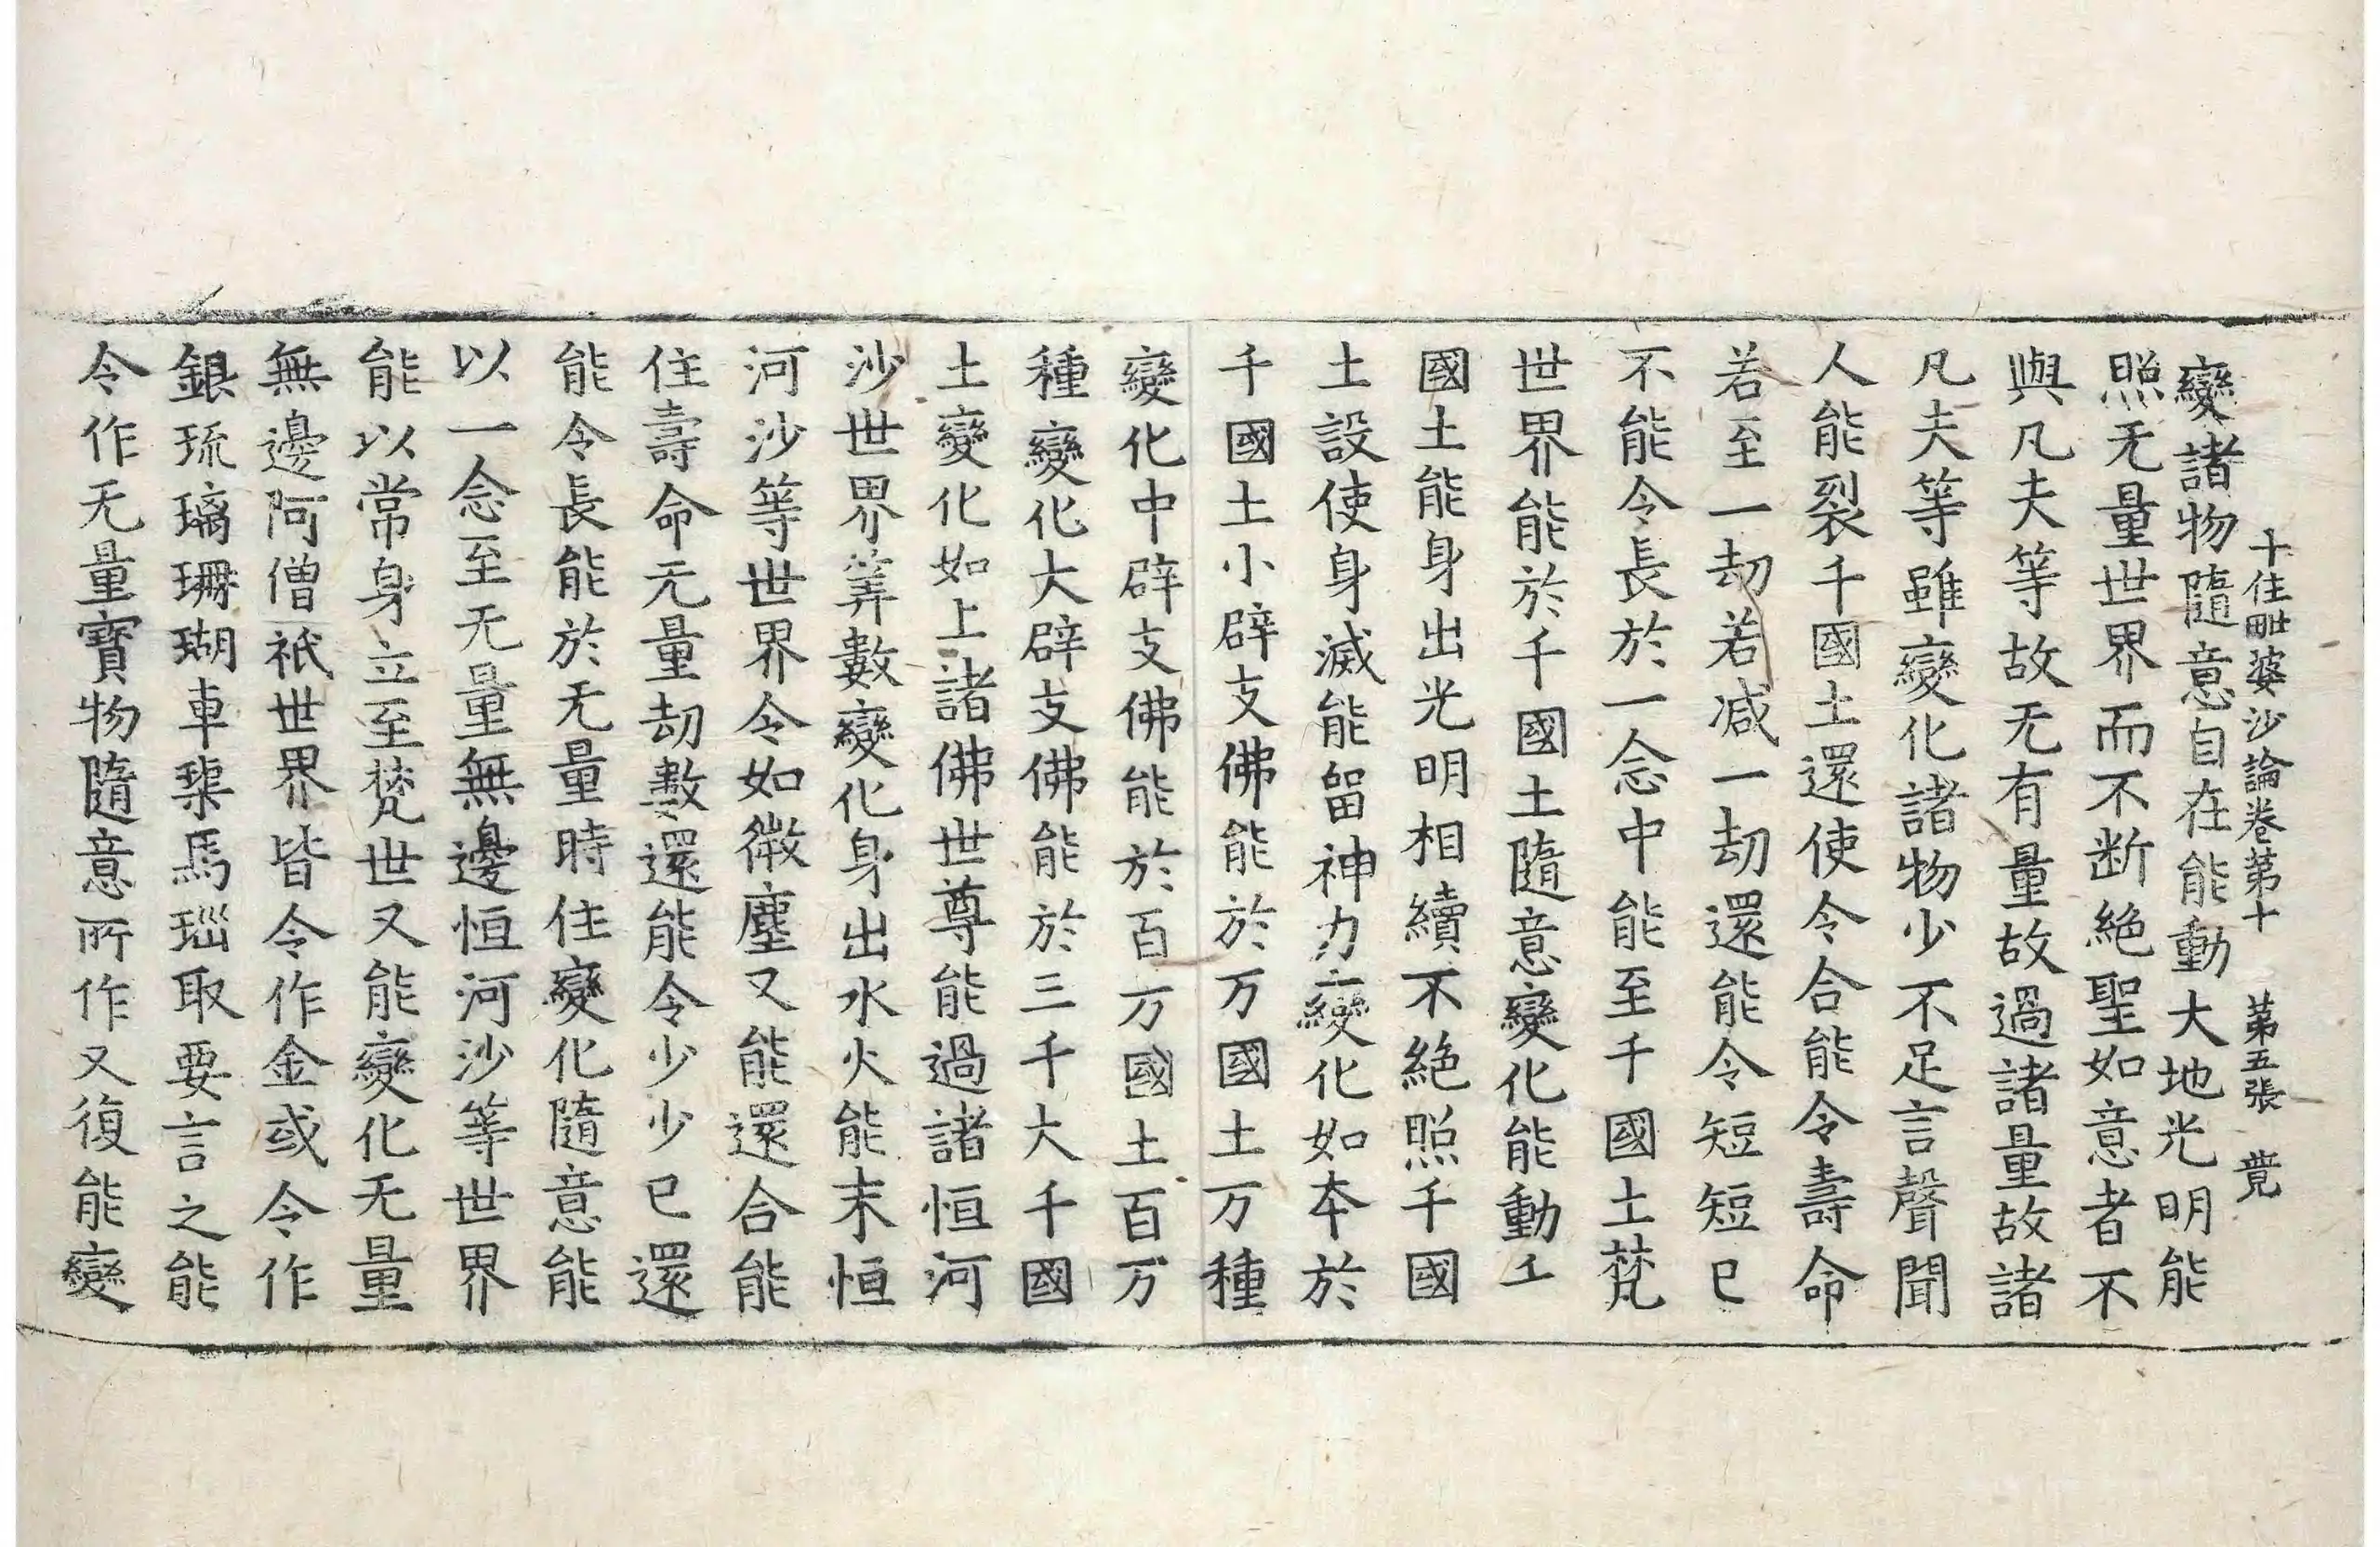 十住毗婆沙論卷第十 第五張 竟
變諸物隨意自在能動大地光明能
照无量世界而不断絶聖如意者不
與凡夫等故无有量故過諸量故諸
凡夫等雖變化諸物少不足言聲聞
人能裂千國土還使令合能令壽命
若至一劫若减一劫還能令短短已
不能令長於一念中能至千國土梵
世界能於千國土隨意變化能動千
國土能身出光明相續不絶照千國
土設使身滅能留神力變化如本於
千國土小辟支佛能於万國土万種
變化中辟支佛能於百万國土百万
種變化大辟支佛能於三千大千國
土變化如上諸佛世尊能過諸恒河
沙世界筭數變化身出水火能末恒
河沙等世界令如微塵又能還合能
住壽命无量劫數還能令少少已還
能令長能於无量時住變化隨意能
以一念至无量無邊恒河沙等世界
能以常身立至梵世又能變化无量
無邊阿僧祇世界皆令作金或令作
銀琉璃珊瑚車璖馬瑙取要言之能
令作无量寳物隨意所作又復能變